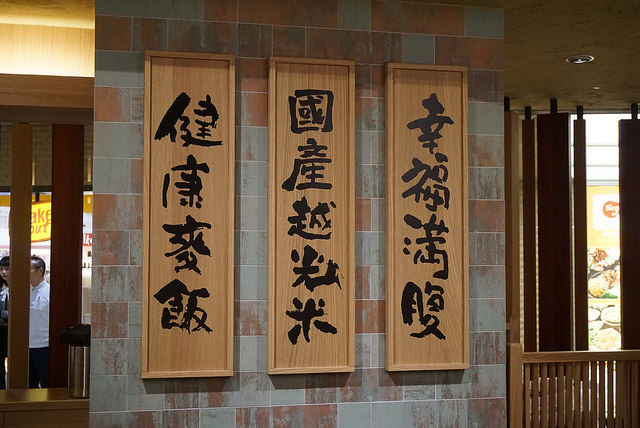 幸福満腹
國産越光米
健康麥飯
ake
out